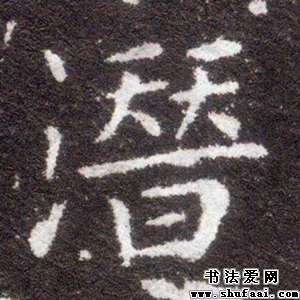 潛
书法爱网
www.shufaai.com